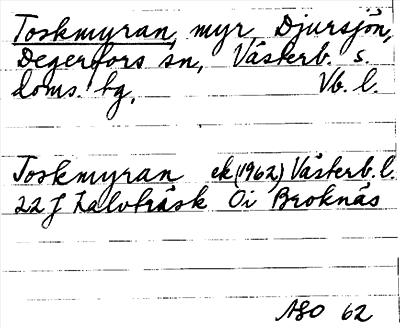 Toskmyran, myr Djursjön,
Degerfors sn, Västerb. s.
doms. bg, Vb. l.
Toskmyran ek (1962) Västerb. l.
22 J Kalvträsk Oi Broknäs
ASO 62